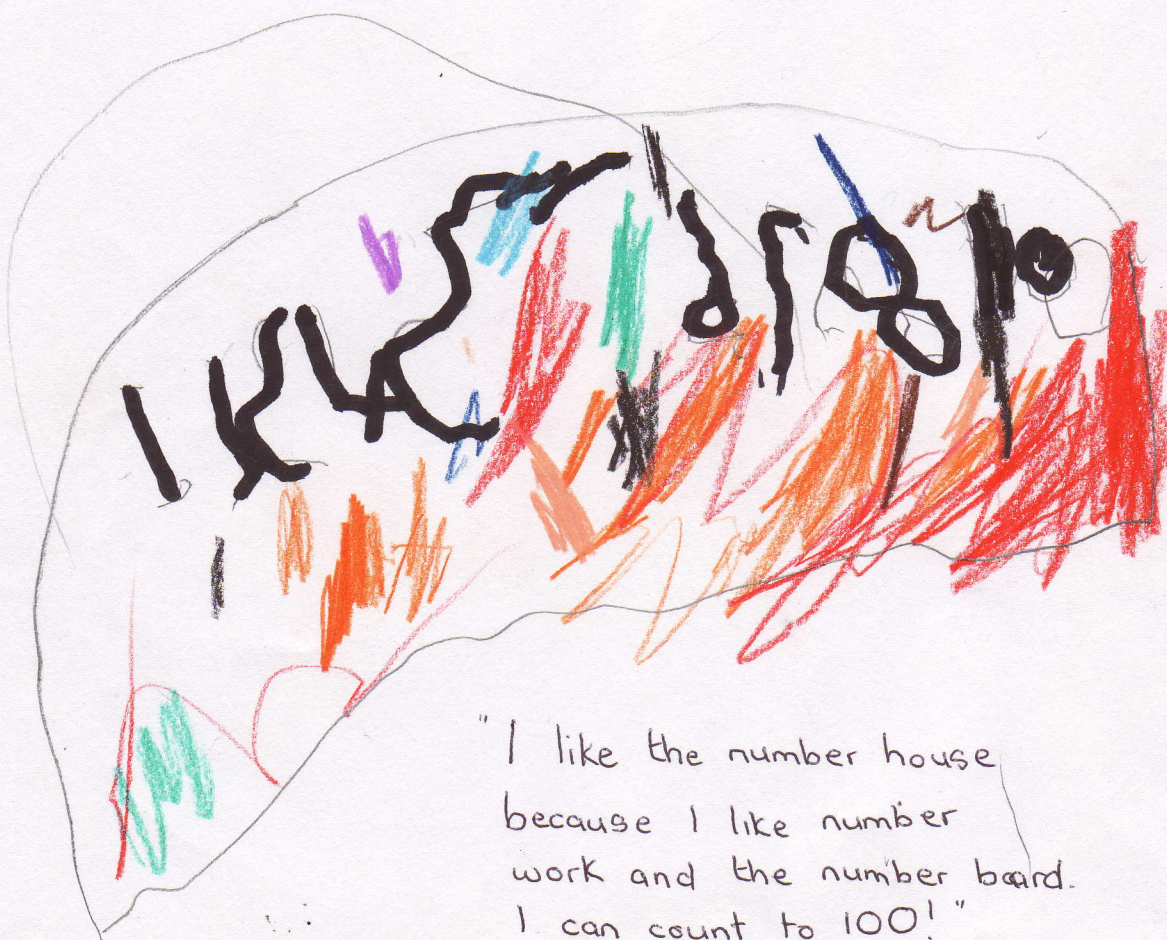 1 2 3 4 5 6 7 8 9 10
"I like the number house
because I like number
work and the number board.
I can count to 100!"